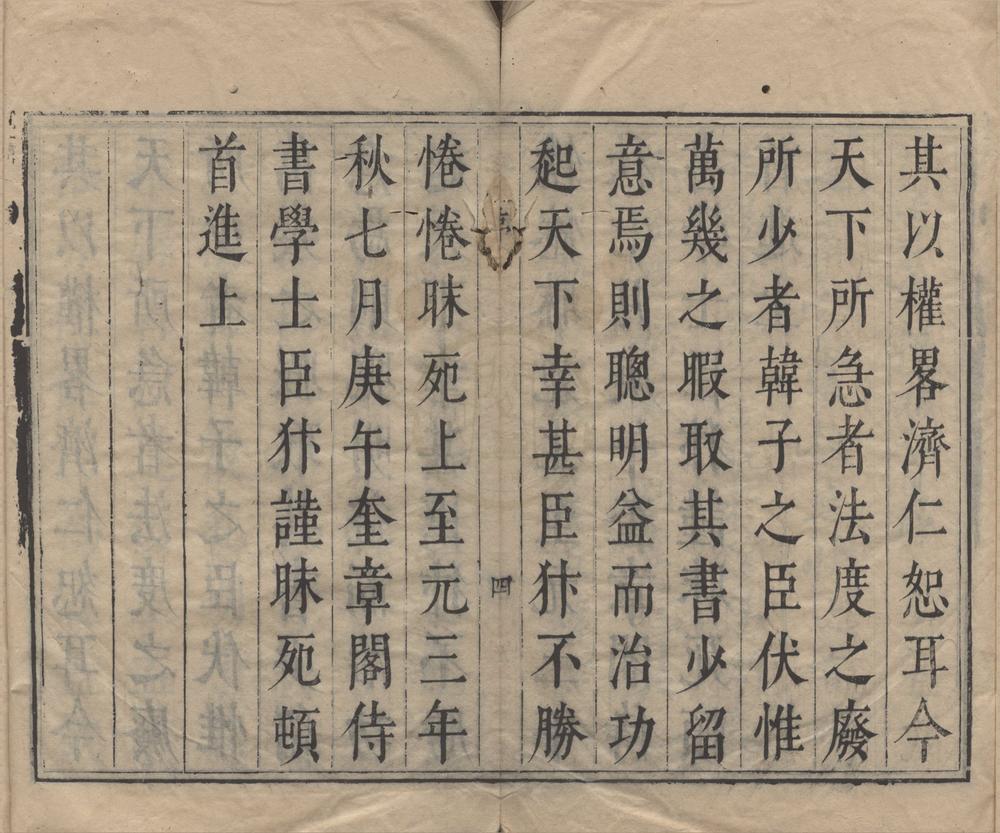 其以權畧濟仁恕耳今
天下所急者法度之廢
所少者韓子之臣伏惟
萬幾之暇取其書少留
意焉則聰明益而治功
起天下幸甚臣犿不勝
四
惓惓昧死上至元三年
秋七月庚午奎章閣侍
書學士臣犿謹昧死頓
首進上